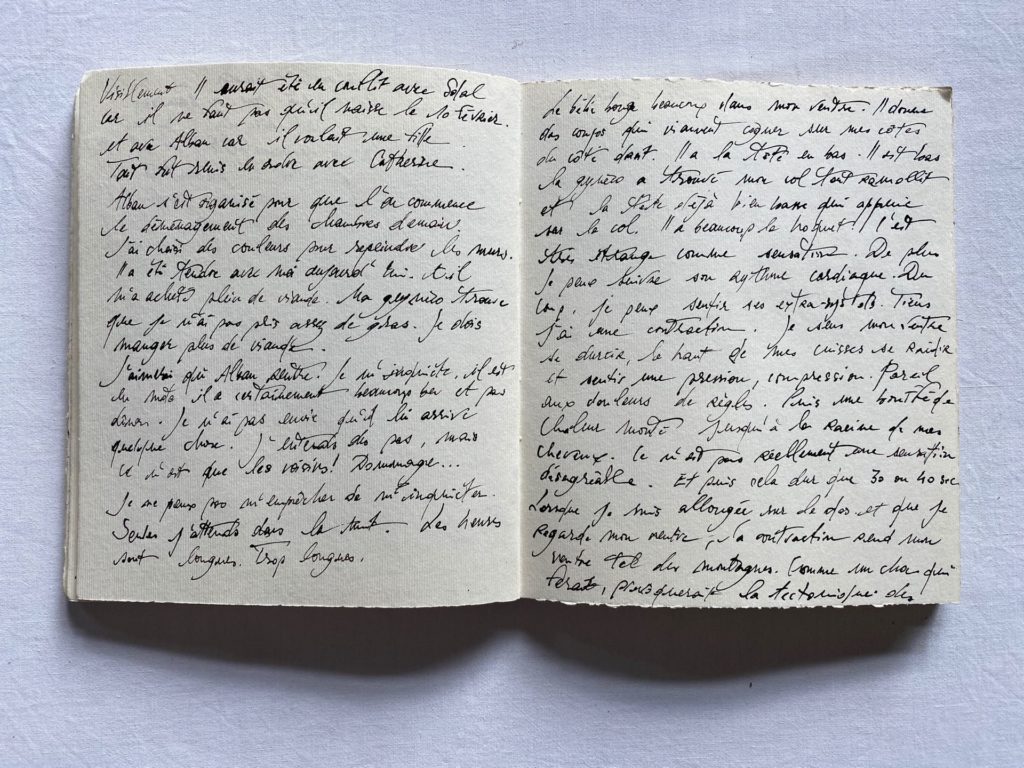 Visiblement Il aurait été en conflit avec
car il ne faut pas qu'il naisse le 10 février.
et avec Alban car il voulait une fille.
Tout est remis en ordre avec Catherine.
Alban s'est organisé pour que l'on commence
le déménagement des chambres demain.
J'ai choisi des couleurs pour repeindre les murs.
Il a été tendre avec moi aujourd'hui. Et il
m'a acheté plein de viande. Ma gynéco trouve
que je n'ai pas pris assez de gras. Je dois
manger plus de viande.
J'aimerai qu'Alban rentre. Je m'inquiète, il est
en moto il a certainement beaucoup bu et pas
. Je n'ai pas envie qu'il lui arrive
quelque chose. J'entends des pas, mais
ce n'est que les voisins! Dommage...
Je ne peux pas m'empêcher de m'inquiéter.
Seule, j'attends dans la nuit. Les heures
sont longues. Trop longues.
Le bébé bouge beaucoup dans mon ventre. Il donne
des coups qui viennent cogner sur mes côtes
du côté droit. Il a la tête en bas. Il est bas
la gynéco a trouvé mon col tout ramollit
et la tête déjà bien basse qui appuie
sur le col. Il a beaucoup le hoquet! C'est
très étrange comme sensation. De plus
je peux suivre son rythme cardiaque. Du
coup, je peux sentir ses extra-systols. Tiens
j'ai une contraction. Je sens mon ventre
se durcir, le haut de mes cuisses se raidir
et sentir une pression, compression. Pareil
aux douleurs de règles. Puis une bouffée de
chaleur monte jusqu'à la racine de mes
cheveux. Ce n'est pas réellement une sensation
désagréable. Et puis cela dur que 30 ou 40 sec
Lorsque je suis allongée sur le dos et que je
regarde mon ventre, la contraction rend mon
ventre tel des montagnes. Comme un
la tectonique des